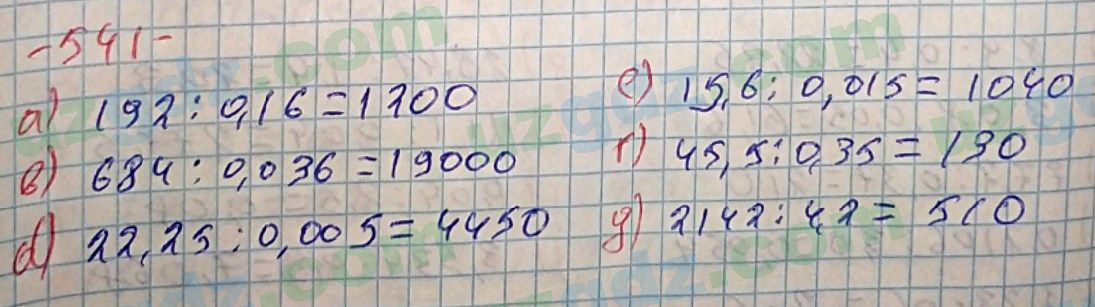 -541-
a) 192 : 0,16 = 1200
в) 684 : 0,036 = 19000
d) 22,25 : 0,005 = 4450
e) 15,6 : 0,015 = 1040
г) 45,5 : 0,35 = 130
g) 2142 : 42 = 510